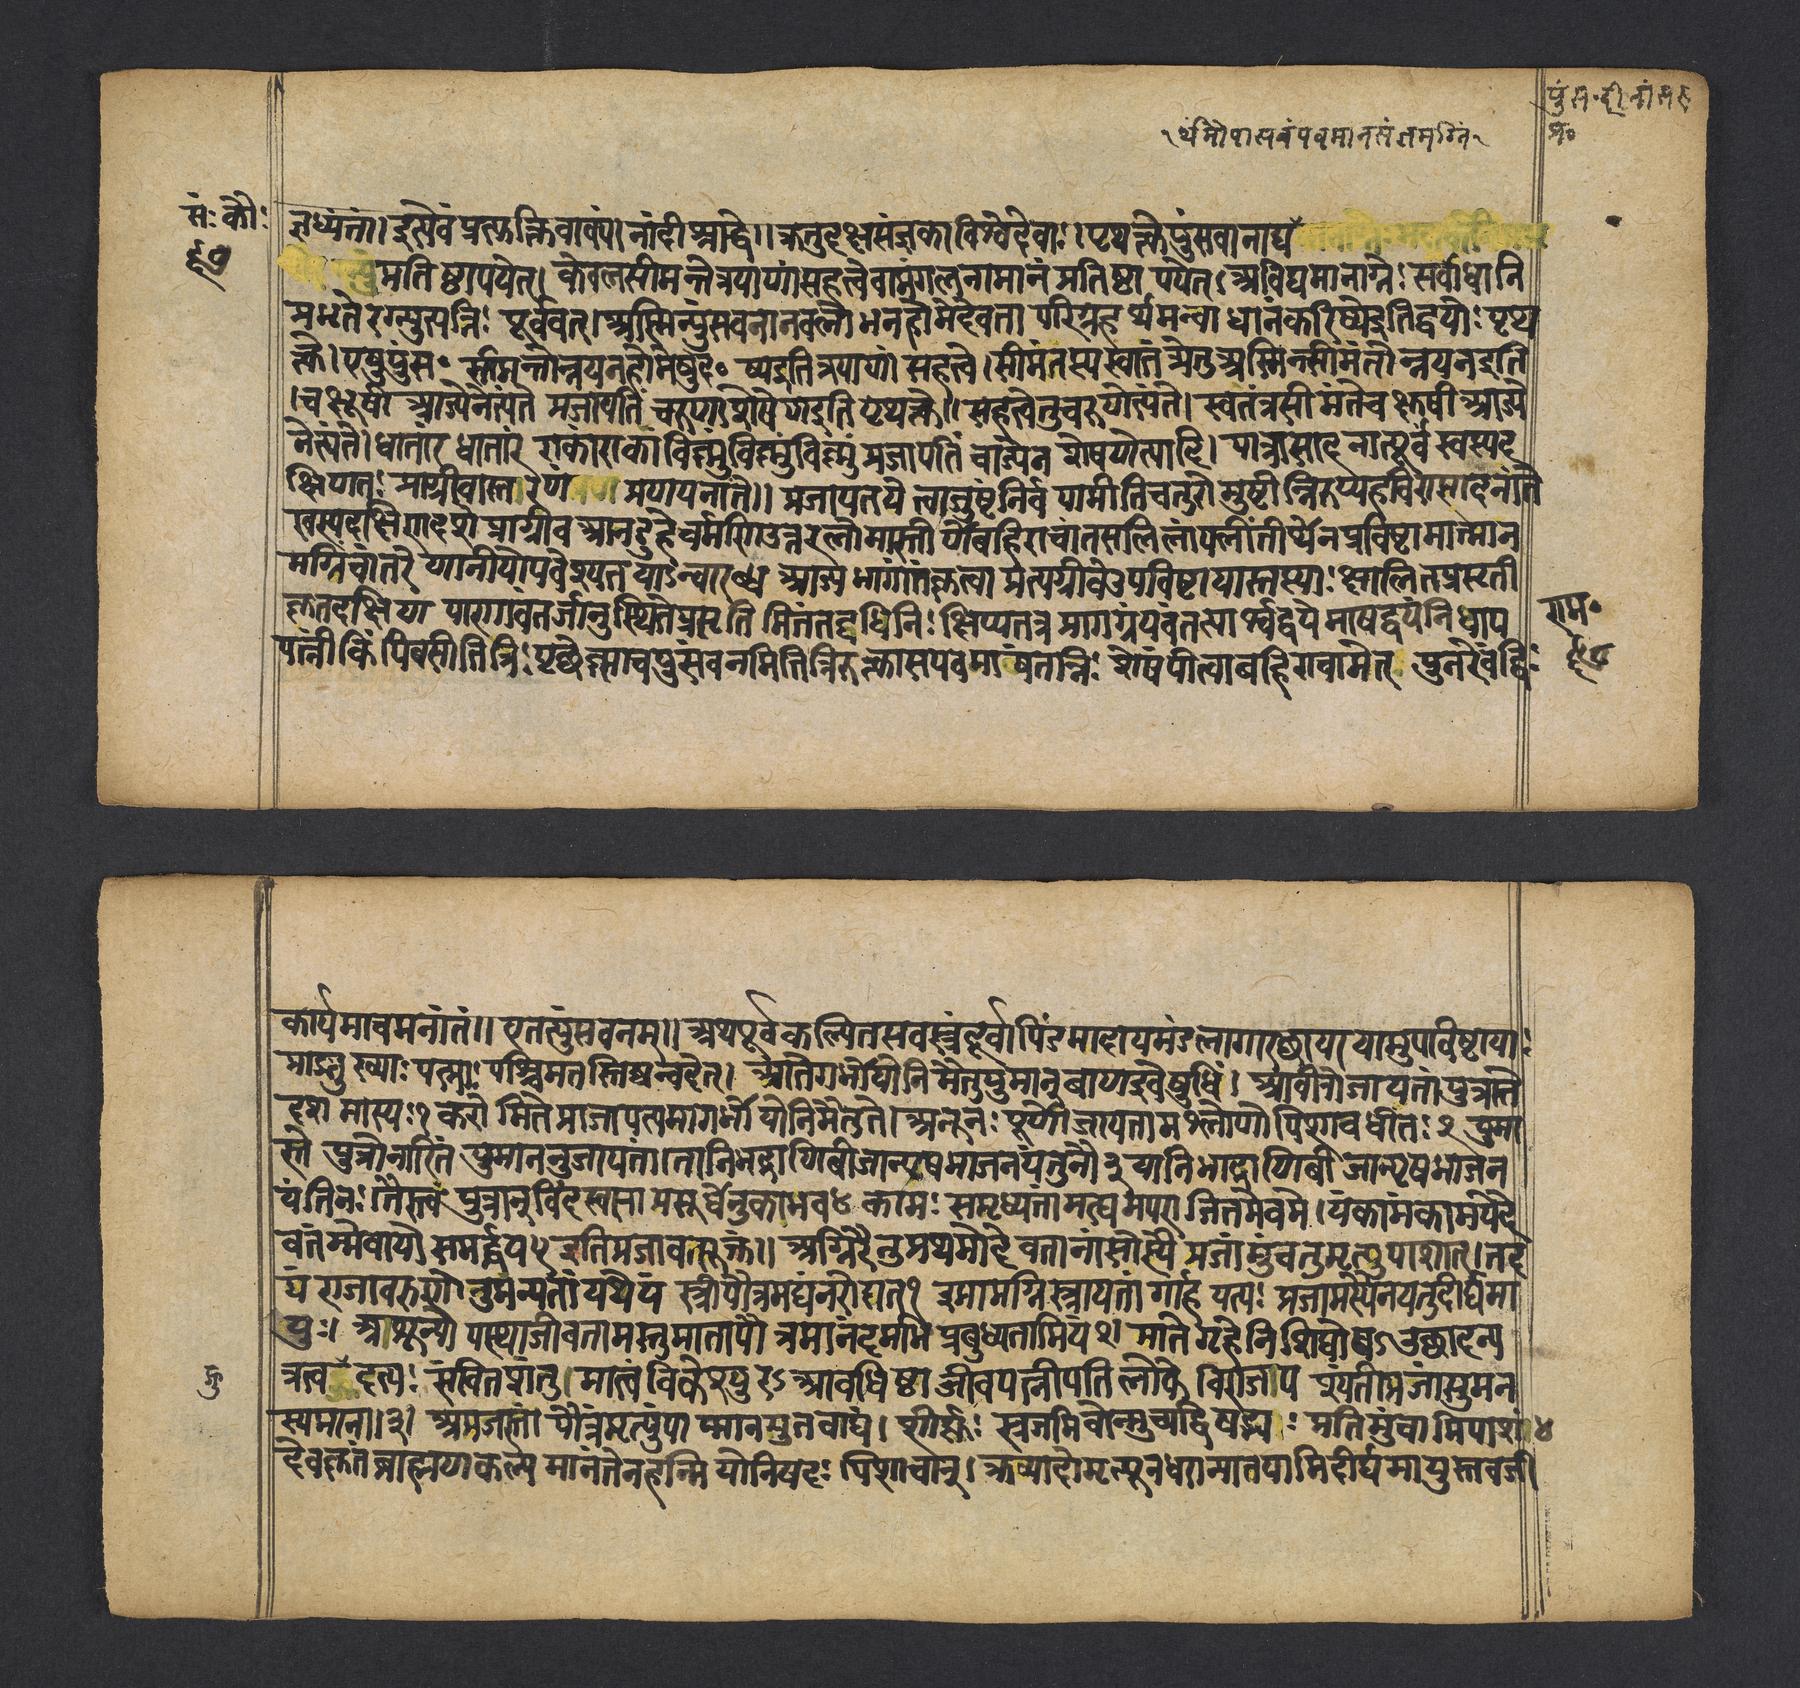 पुं स दी नां अह
थंमौपासनंपवमानसंज्ञमग्निं
अ॰
सं: कौ: ऋध्यंतां। इत्येवं प्रत्युक्तिवाक्यं। नांदीश्राद्धे।। क्रतुदक्षसंज्ञका विश्वेदेवाः। पृथक्त्वे पुंसवानाद्य
प्रतिष्ठापयेत्। केवलसीमन्ते त्रयाणां सहत्वेवा मंगलनामानं प्रतिष्ठापयेत्। अविद्यमानाग्नेः सर्वाधानि
अमते रग्न्युत्पत्तिः पूर्ववत्। अस्मिन्पुंसवनानवलोभनहोमे देवता परिग्रहार्थमन्वाधानं करिष्ये इति द्वयोः पृथ
क्त्वे। एषु पुंस॰ सीमन्तोन्नयनहोमेषु दे॰ ष्य इति त्रयाणां सहत्वे। सीमंतस्य स्वातंत्र्येतु अस्मिन्सीमंतोन्नयन इति
। चक्षुषी आज्येनेत्यंते प्रजापतिं चरुणा शेषेणे इति पृथक्त्वे।। सहत्वेतु चरुणेत्यंते। स्वतंत्रसीमंते चक्षुषी आज्ये
नेत्यंते। धातारं धातारं राकां राकां विष्णुं विष्णुं विष्णुं प्रजापतिं चाज्येन शेषेणेत्यादि। पात्रासादनात्पूर्वं स्वस्यद
क्षिणतः प्राग्रीवास्तरणं प्रजापतये त्वा जुष्टं निर्वपामीति चतुरो मुष्टीन्निरुप्य हविरासादनांते
स्वस्य दक्षिणादेशे प्राग्रीव आनडुहे चर्मणि उत्तरलोमास्तीर्णे बहिराचांतसलिलां पत्नीं तीर्थेन प्रविष्टामात्मान
मग्निं चांतरेण्यानीयोपवेश्य तयाऽन्वारब्ध आज्य भागांतं कृत्वा प्रत्यग्रीवं उपविष्टायास्तस्याः क्षालितप्रसृती
कृतदक्षिण पाणावंतर्जानुस्थिते प्रसृतिमितं तद्दधि निः क्षिप्य तत्र प्रागग्रं यवं तत्पार्श्वद्वये माषद्वयं निधाय
पत्नीं किं पिबसीति त्रिः पृच्छेत्साच पुंसवनमिति त्रिरुक्त्वा सयवमाषंतत्त्रिः शेषं पीत्वा बहिराचामेत् पुनरेवं द्विः
राम॰
कार्यमाचमनांतं।। एतत्पुंसवनम्।। अथ पूर्वकल्पितसवस्त्रं दूर्वापिंडमादाय मंडलागारछायायामुपाविष्टायाः
प्राङ्मुख्याः पत्न्याः पश्चिमतस्तिष्ठन्वदेत्। आते गर्भो योनिमेतु पुमान्बाण इवेषुधिं। आवीरो जायतां पुत्रस्ते
दशमास्यः१ करोमि ते प्राजापत्यमागर्भो योनिमेतुते। अनूनः पूर्णो जायतामश्लोणो पिशाचधीतः २ पुमां
स्ते पुत्रो नारितं पुमाननुजायतां। तानि भद्राणि बीजान्यृषभा जनयंतु नौ३ यानि भद्राणि बीजान्यृषभा जन
यंति नः। तैस्त्वं पुत्रान् विंदस्वसा प्रसूर्धेनुका भव४ कामः समृध्यतां मह्यमपराजितमेव मे। यं कामं कामये दे
वतं मे वायो समर्द्धय५ इति प्रजावत्सूक्तं।। अग्निरैतु प्रथमो देवतानां सोस्यै प्रजां मुंचतु मृत्युपाशात्। तद
यं राजा वरुणोनुमन्यतां यथेयं स्त्री पौत्रमघं नरोदात्१ इमामग्निस्त्रायतां गार्हपत्यः प्रजामस्यै नयतु दीर्घमा
युः। अशून्योपस्था जीवतामस्तु माता पौत्रमानंदमभि प्रबुध्यतामियं२। मा ते गृहे निशि घोष उच्छादन्य
त्रत्व द्रुदत्यः संविशंतु। मात्वं विकेश्युर आवधिष्ठा जीवपत्नी पतिलोके विराजप श्यंती प्रजां सुमन
स्यमानां।।३। अप्रजस्तां पौत्रं मृत्युंपाप्मानमुत वाघं। शीर्ष्णः स्रजमिवोन्मुच्य द्विषद्भ्यः प्रतिमुंचामि पाशं।४
देवकृतं ब्राह्मणं कल्पमानं तेन हन्मि योनिषदः पिशाचान्। क्रव्यादो मृत्यूनधरान्पातयामि दीर्घमायुस्तव जी